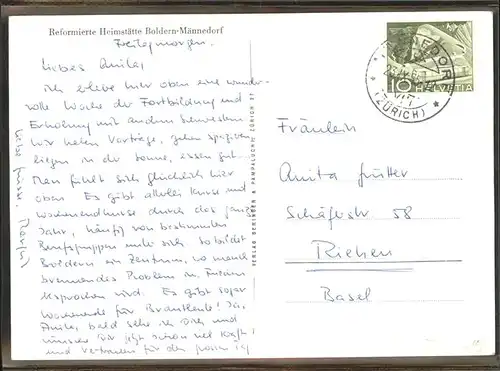 Reformierte Heimstätte Boldern-Männedorf
Freitagmorgen.
Liebes Anitli,
ich erlebe hier oben eine wunder-
volle Woche der Fortbildung und
Erholung mit andern Schwestern
wir hören Vorträge, gehen spazieren
liegen in der Sonne, essen gut.
Man fühlt sich glücklich hier
oben. Es gibt allerlei Kurse und
Wochenendkurse durch das ganze
Jahr, häufig von bestimmten
Berufsgruppen
Boldern ein Zentrum, wo manch
brennendes Problem in Frieden
besprochen wird. Es gibt sogar
Wochenende für Brautleute! Ja,
Anitli, bald sehe ich Dich und
wünsche Dir jetzt schon viel Kraft
und Vertrauen für den grossen Tag
VERLAG BERINGER & PAMPALUCHI ZÜRICH 27
MÄNNEDORF
(ZÜRICH)
10 HELVETIA
Fräulein
Anita Hütter
Schäferstr. 58
Riehen
Basel